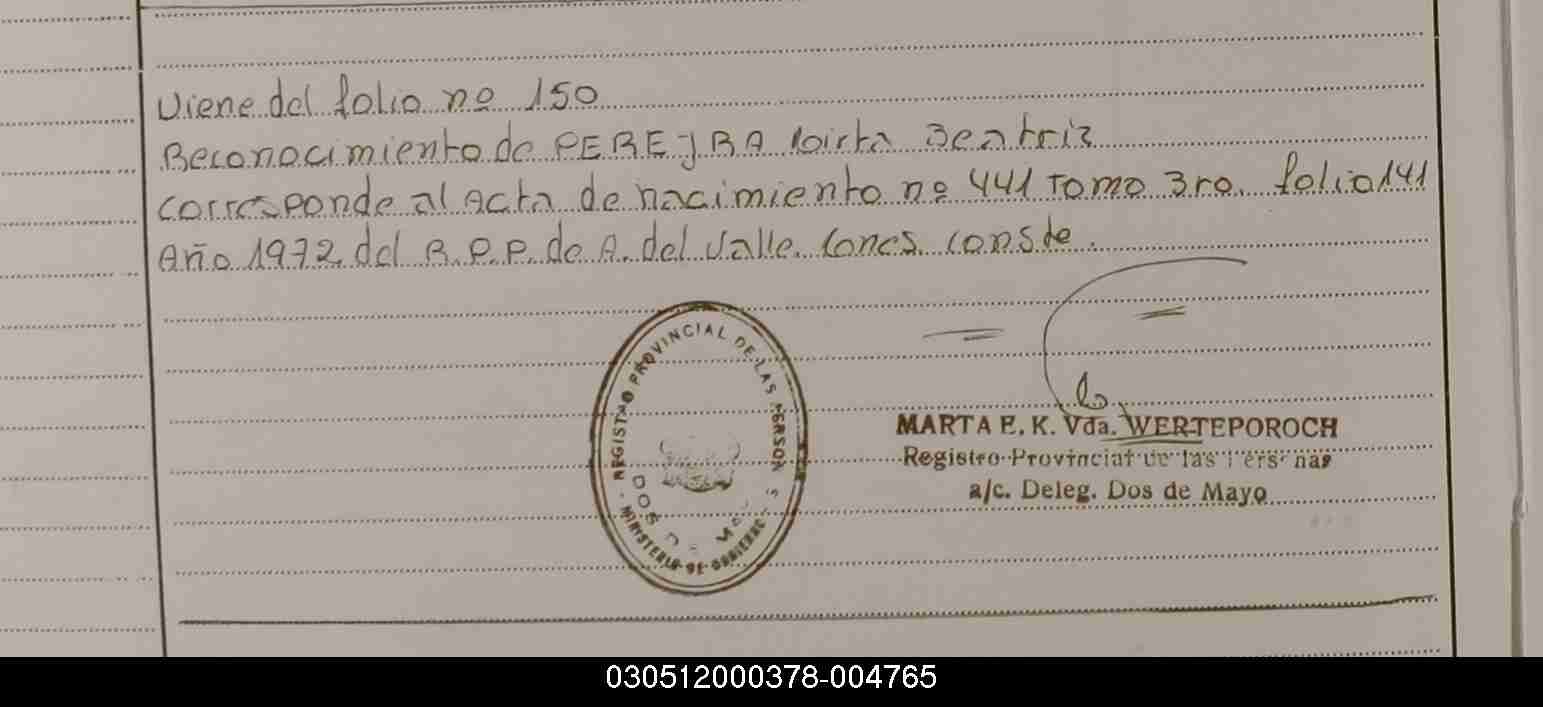 Viene del folio nº 150
Reconocimiento de PEREJRA Mirta Beatriz
Corresponde al Acta de nacimiento nº 441 Tomo 3ro. folio 141
Año 1972 del R.P.P. de A. del Valle. Cones. Conste.
REGISTRO PROVINCIAL DE LAS PERSONAS
DOS DE MAYO
MINISTERIO DE GOBIERNO
MARTA E. K. Vda. WERTEPOROCH
Registro Provincial de las Personas
a/c. Deleg. Dos de Mayo
030512000378-004765